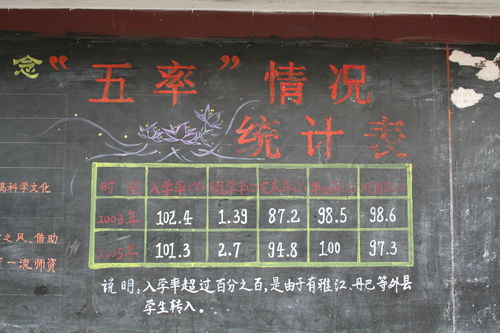 念
“五率”情况
统计表
时 入学率(%) 辍学率(%) 完成率(%)
2003年 102.4 1.39 87.2 98.5 98.6
2005年 101.3 2.7 94.8 100 97.3
说明：入学率超过百分之百，是由于有雅江、丹巴等外县
学生转入。
高科学文化
之风，借助
一流师资